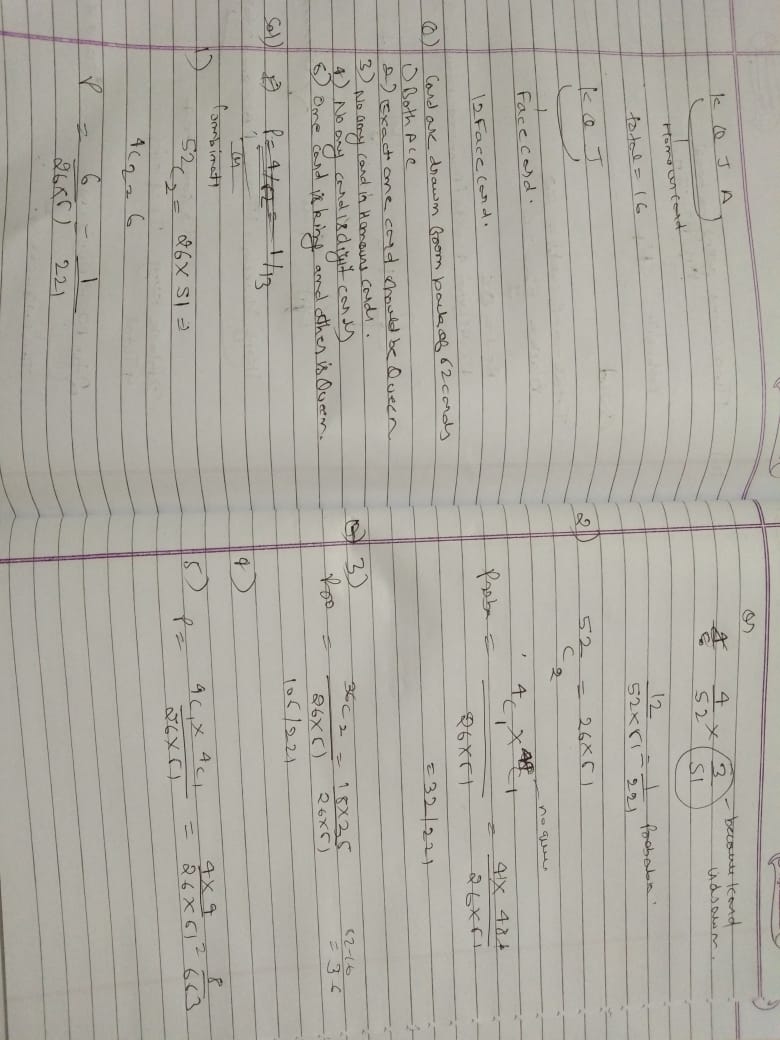 K Q J A
Honours card
total = 16
K Q J
Face card.
12 Face card.
Q) Card are drawn from pack of 52 cards
1) Both Ace
2) Exact one card should be Queen
3) No any card is Honours cards.
4) No any card is digit cards
5) One card is king and other is Queen.
Sol) P = 4/52 = 1/13
1) Combinati
52C2 = 26 × 51 =
4C2 = 6
P = 6/26×51 = 1/221
Or
4/52 × 3/51 - because 1 card is drawn.
12/52×51 = 1/221 Probaba.
2) 52C2 = 26×51
Proba = 4C1 × 48C1 / 26×51 = 4×48 / 26×51
no queen
= 32/221
3) 52-16 = 36
Pro = 36C2 / 26×51 = 18×35 / 26×51
105/221
4)
5) P = 4C1 × 4C1 / 26×51 = 4×4 / 26×51 = 8/663